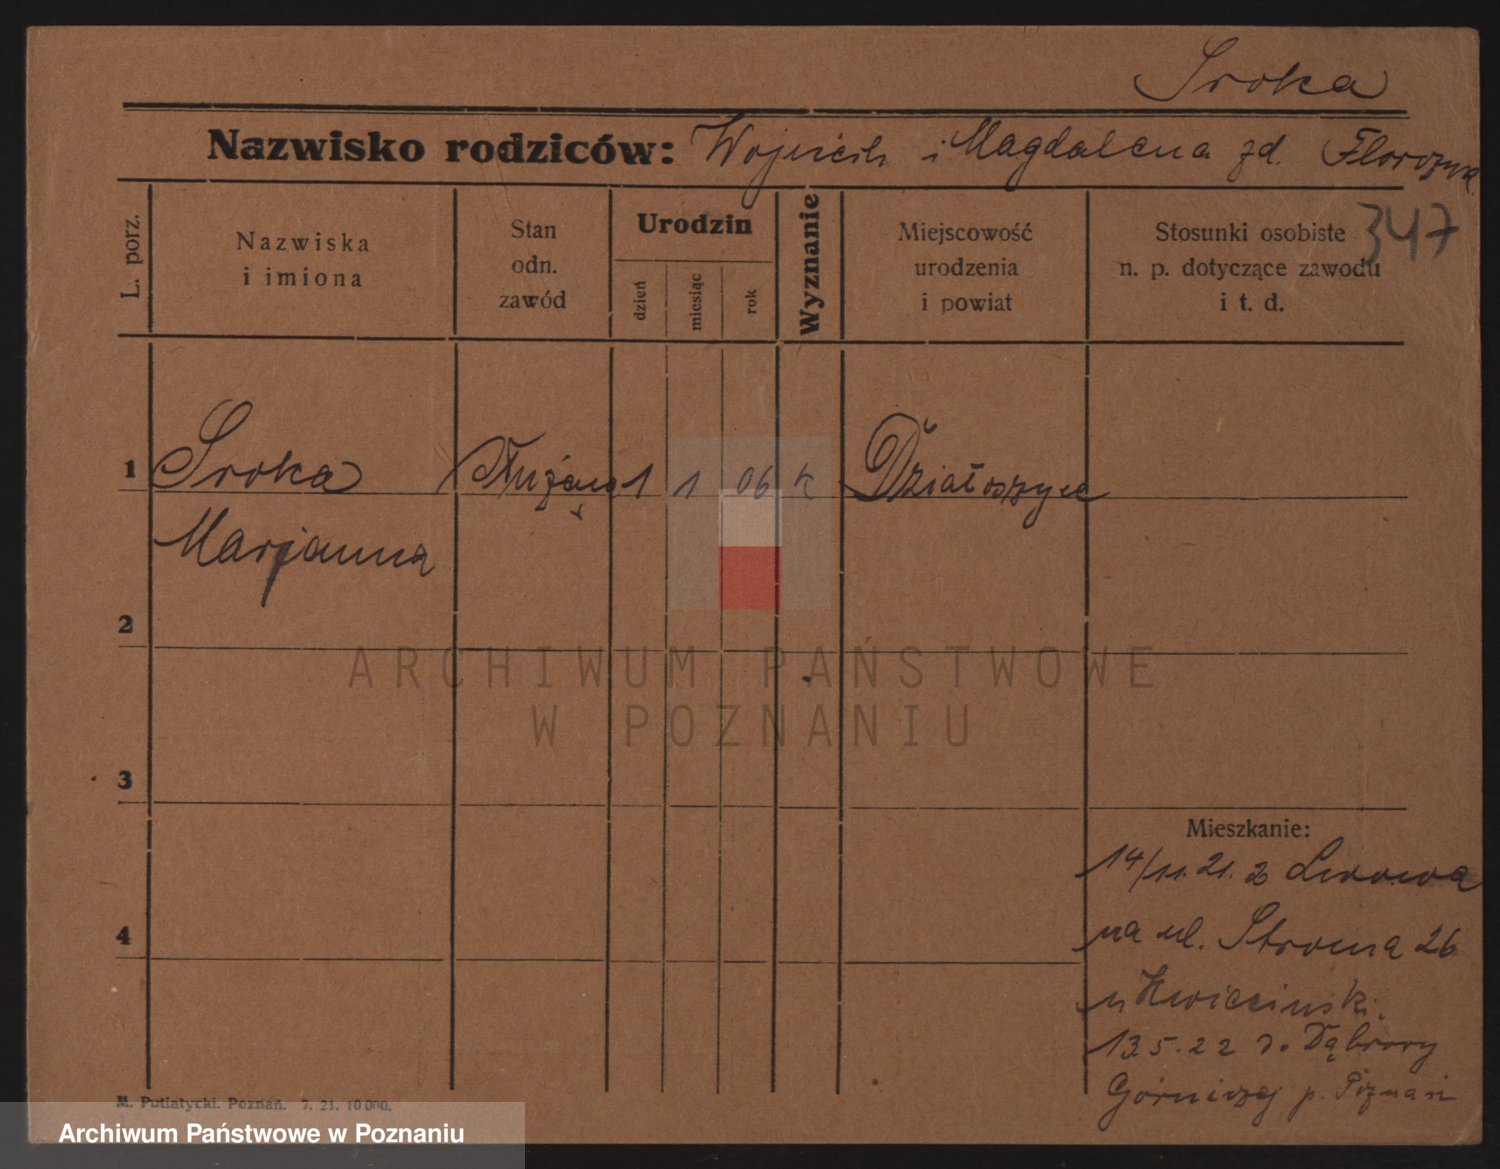 Sroka
Nazwisko rodziców: Wojciech i Magdalena zd. Florczyk
347
L. porz.
Nazwiska
i imiona
Stan
odn.
zawód
Urodzin
dzień
miesiąc
rok
Wyznanie
Miejscowość
urodzenia
i powiat
Stosunki osobiste
n. p. dotyczące zawodu
i t. d.
1 Sroka Służąca 1 1 06 k Działoszyce
Marjanna
2
ARCHIWUM PAŃSTWOWE
W POZNANIU
3
Mieszkanie:
14/11.21. z Lwowa
4
na ul. Stroma 26
u Kwiecinski.
13.5.22 do Dąbrowy
Górniczej p. Poznań
M. Putiatycki. Poznań. 7. 21. 10 000.
Archiwum Państwowe w Poznaniu